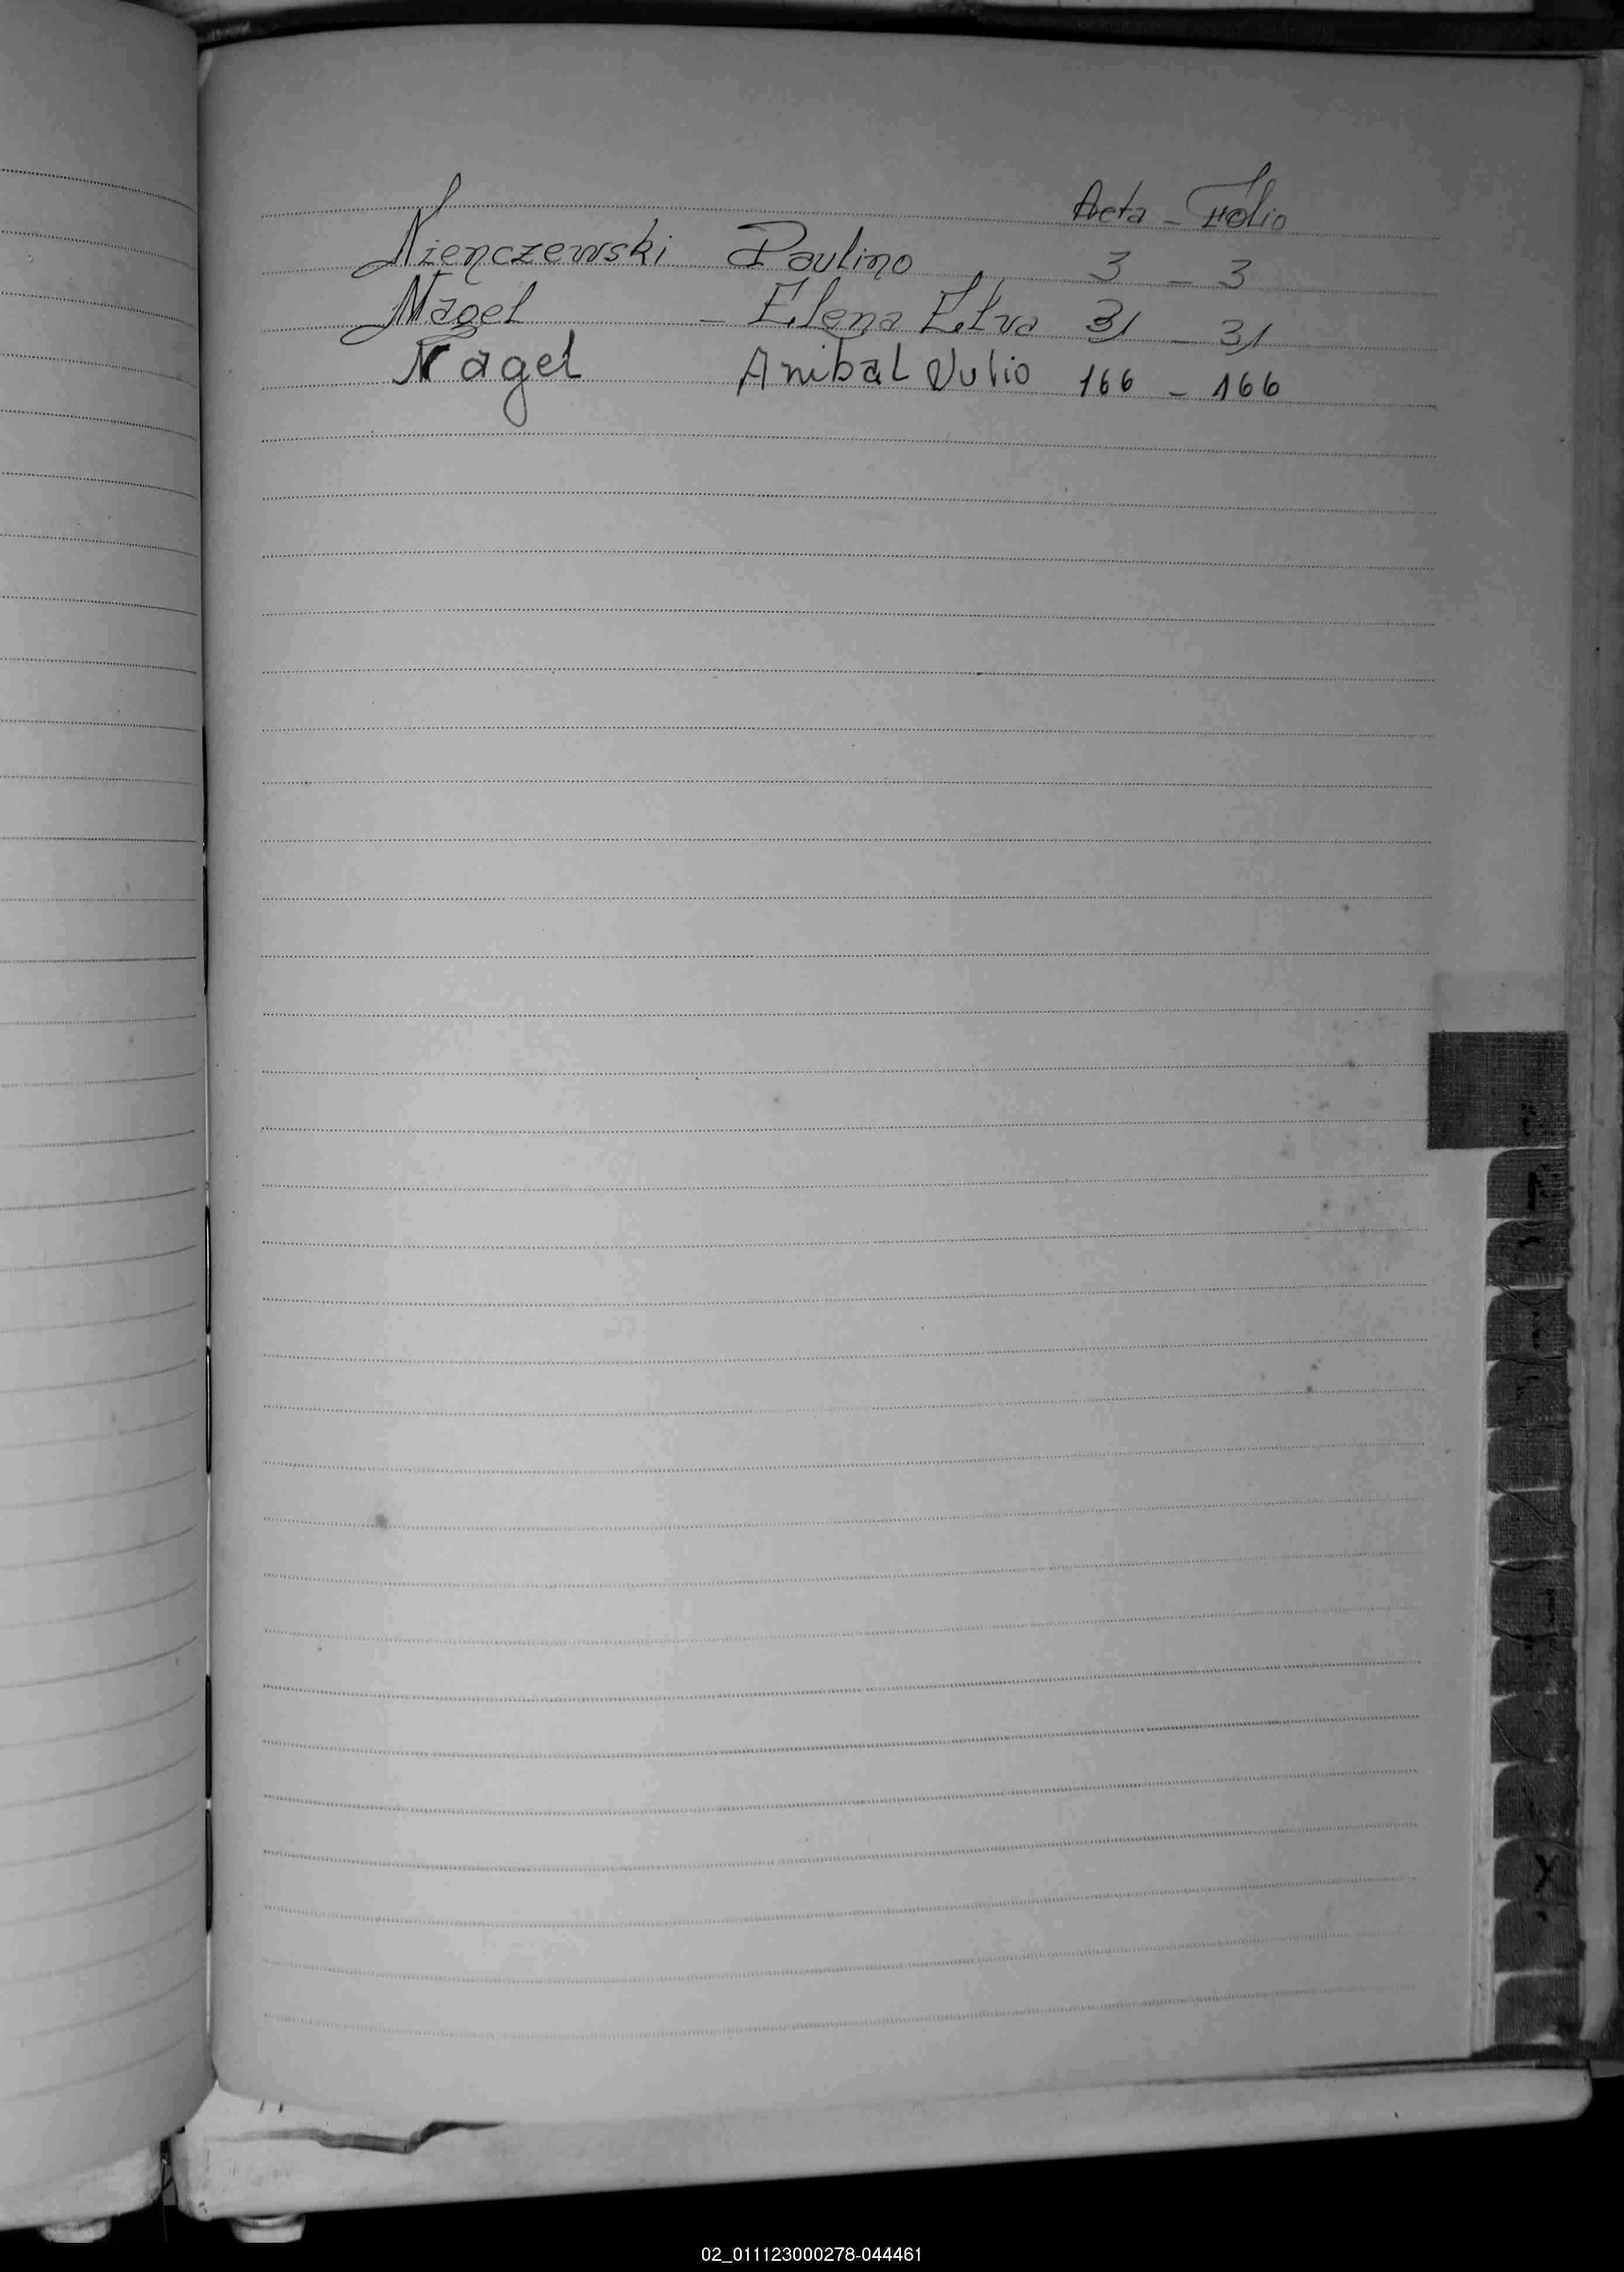 Acta - Folio
Nienczewski Paulino 3 - 3
Nagel - Elena Elva 31 - 31
Nagel Anibal Julio 166 - 166
02_011123000278-044461